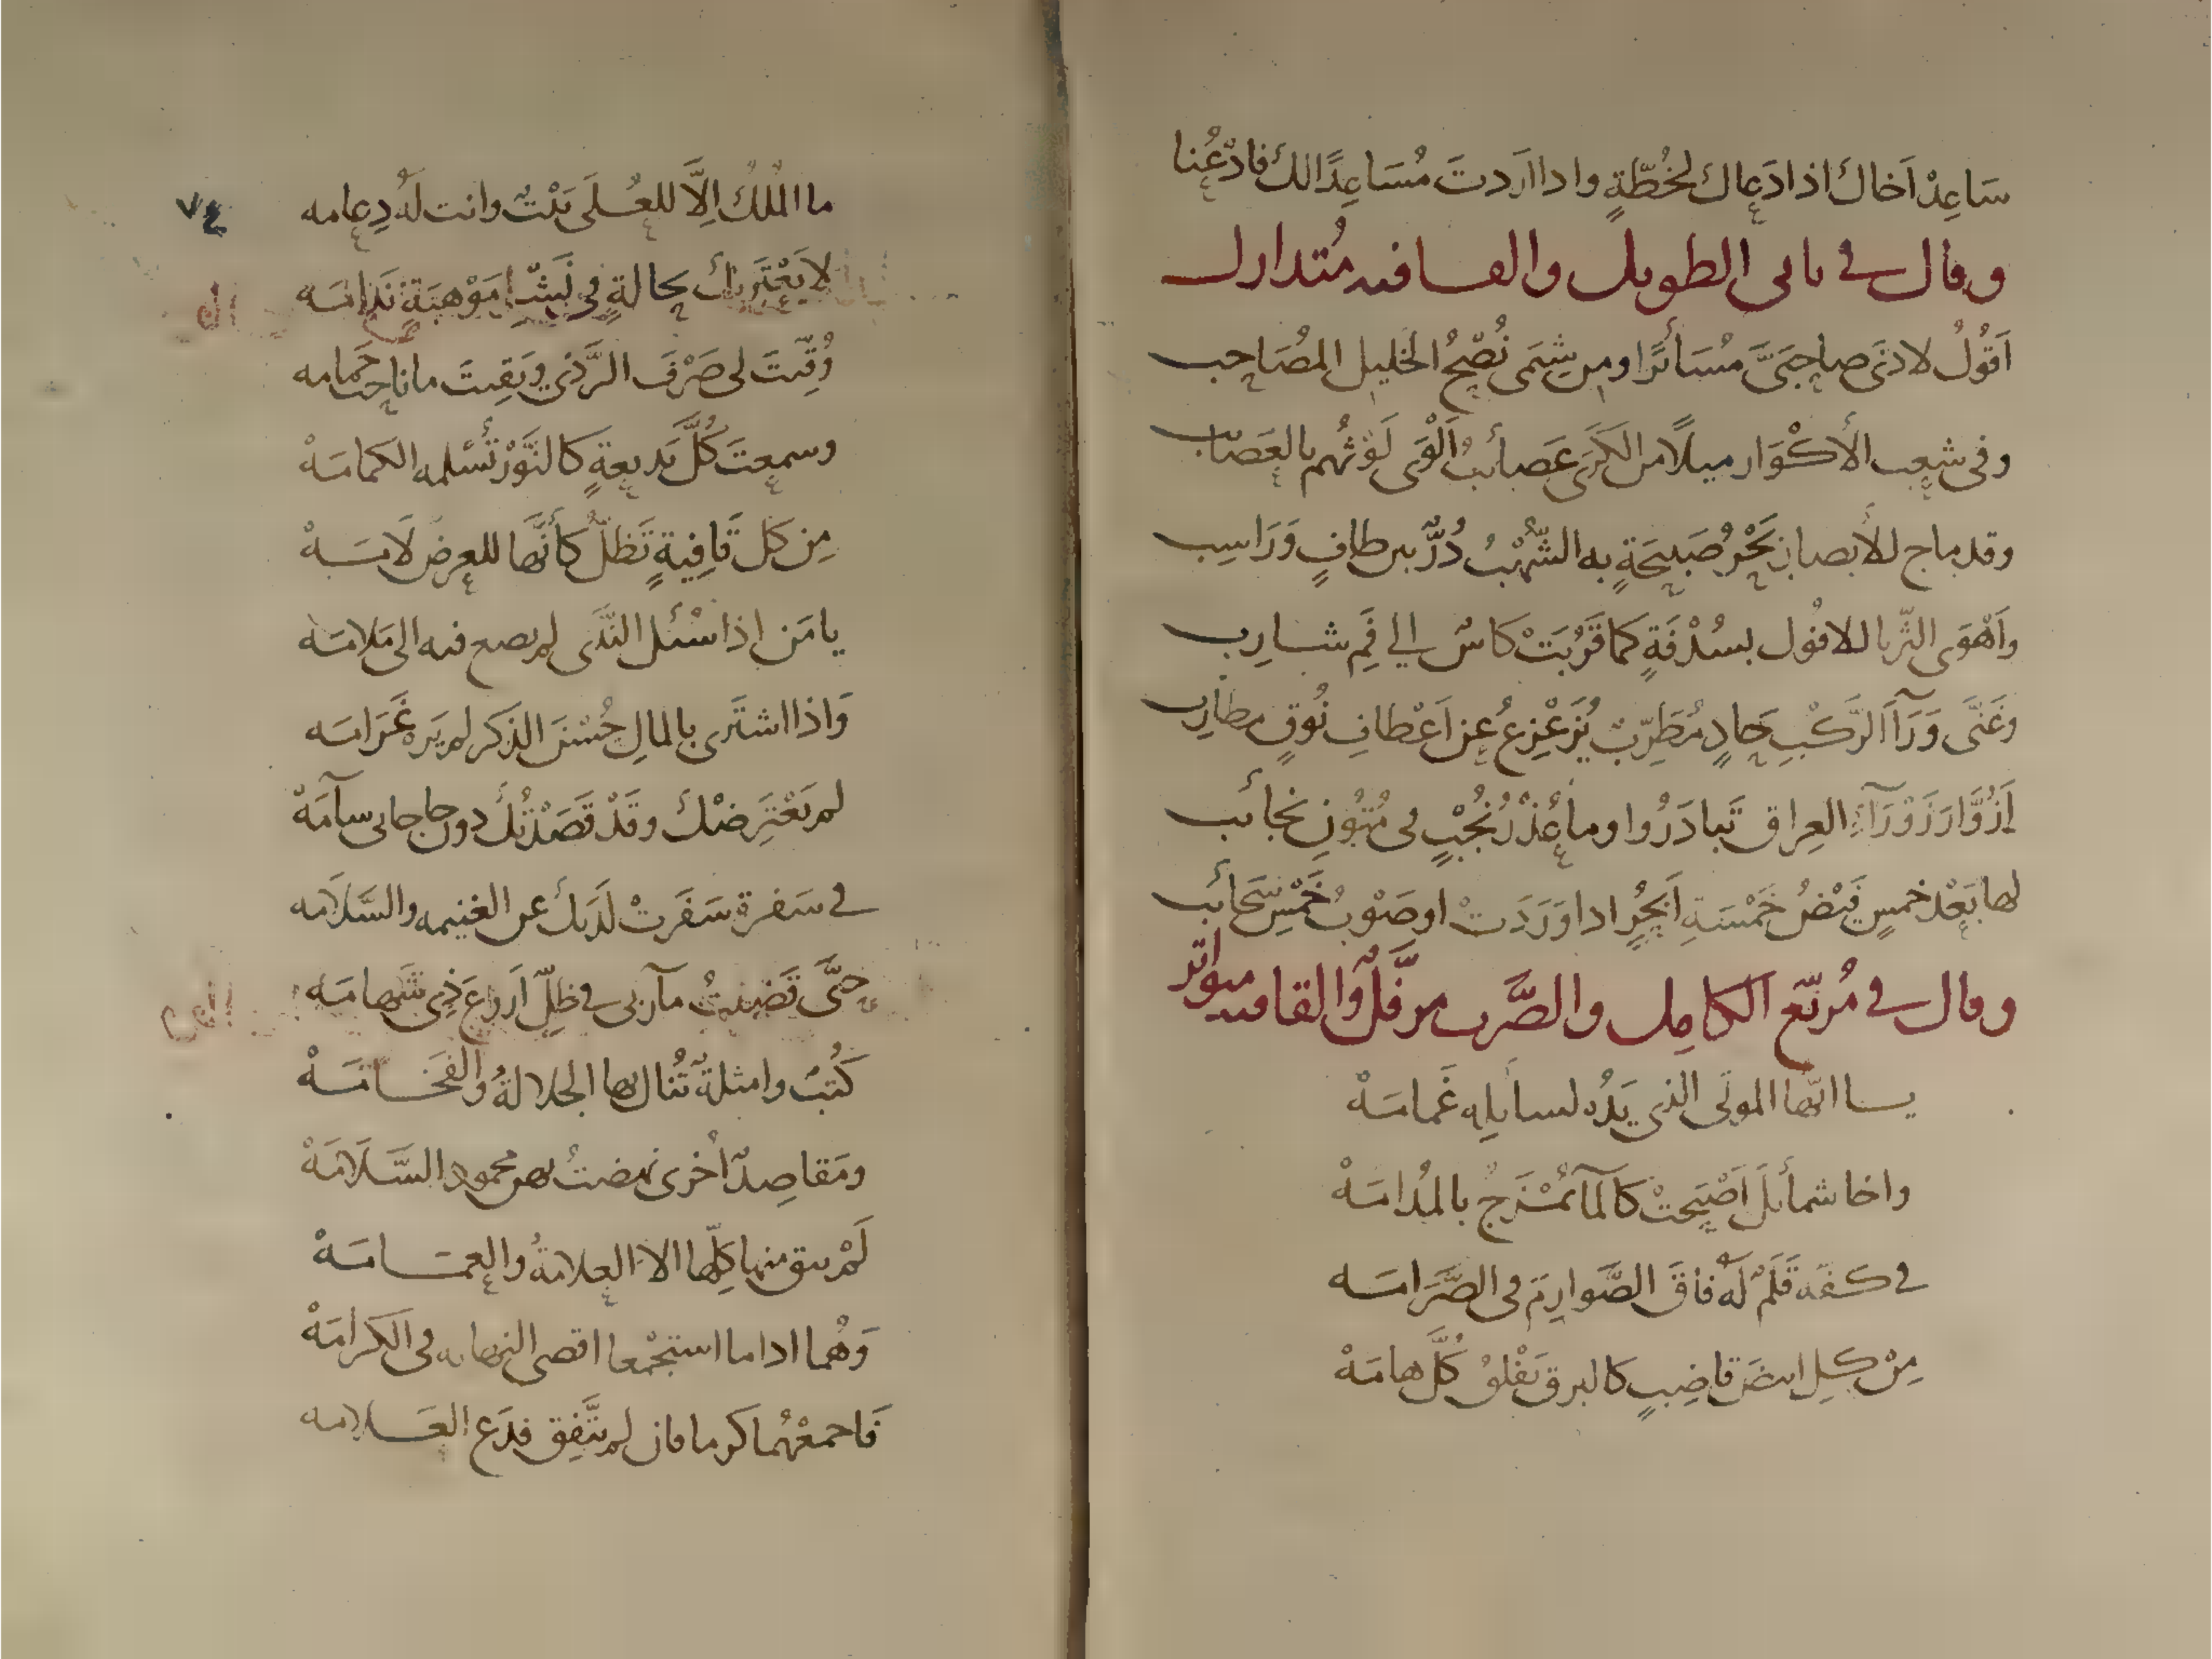 سَاعِدْ اَخاكَ اذا دَعاك لخُطّةٍ واذا اَردتَ مُسَاعِدًا لكَ فادْعُنا
وقال في ثاني الطويل والقافيه مُتدارك
اَقوُلُ لادنَى صاحِبَىَّ مُسَائرًا ومن شِيَمى نُصْحُ الخليل المصَاحِب
وفى شعب الأكْوَار ميلاً من الكَرَى عَصائبُ اَلْقَى لَوْثهُم بالعَصائب
وقد ماج للأبصار بَحْرُ صَبيحَةٍ به الشُهْبُ دُرٌّ بين طافٍ وَرَاسِب
واَهْوَى الثّريا للافُول بسُدْفَةٍ كما قَرُبَتْ كاسٌ الي فَمِ شارِب
وغَنَّى وَرَآءَ الرَّكْبِ حَادٍ مُطَرِّبٌ يُزَعْزِعُ عن اَعْطافِ نُوقٍ مطارِب
اَزُوَّارَ زَوْرَآءِ العِراق تَبادَرُوا وما عُذْرُ نُجْبٍ فى مُتُونِ نجائب
لها بَعْدَ خمسٍ فَيْضُ خَمْسَةِ اَبْحُرٍ اذا وَرَدَتْ او صَوْبُ خَمْسِ سَحَائب
وقال في مُربّع الكامِل والضَّرب مرفَّلٌ والقافيه متواتر
يا ايّها المولَى الذى يَدُه لسايلِه غَمامَهْ
واخا شمائلَ اَصْبَحَتْ كالمآءِ تُمْزَجُ بالمُدامَهْ
في كفّه قَلَمٌ لَهُ فاقَ الصَّوارِمَ فى الصَّرَامَه
مِنْ كلِ ابيضَ قاضِبٍ كالبرقِ يَفْلقُ كُلَّ هامَهْ
ما المُلكُ اِلاَّ للعُلَى بَيْتٌ وانت لَهُ دِعامه
٧٤
لا يَعْتَرِيكَ بحالةٍ فى نَشْرِ مَوْهبَةٍ نَدامَه
وُقّيتَ لى صَرْفَ الرَّدَى وبَقِيتَ ما ناحت حَمامه
وسمعتَ كُلَّ بَديعةٍ كالنَّوْرِ تُسْلمه الكمامَهْ
مِن كل قافِيةٍ تَظلُّ كأنَّها للعِرض لاَمَهْ
يا مَن اذا سُئل النَّدَى لم يصغ فيه الى مَلامَه
وَاذا اشتَرى بالمالِ حُسْنَ الذكر لم يَرَه غَرَامَه
لم يَعْتَرِضْكَ وقَدْ قَصَدْتُكَ دون حاجاتى سآمَهْ
في سَفرةٍ سَفَرتْ لَدَيكَ عن الغنيمه والسَّلامَه
حتَّى قَضَيتُ مآربى في ظلّ اَروَعَ ذى شَهامَه
كُتبٌ وامثلةٌ تُنال بها الجلالةُ والفَخامَهْ
ومَقاصِدٌ اُخرى نهضتُ بهن محمود السَّلامَهْ
لَمْ يبق منها كلِّها الا العِلامةُ والعِمامَهْ
وَهُما اذا ما استجْمعا اقصى النهايه فى الكرامَهْ
فَاجمعْهُما كرما فان لم يتَّفِق فدَع العَلامه